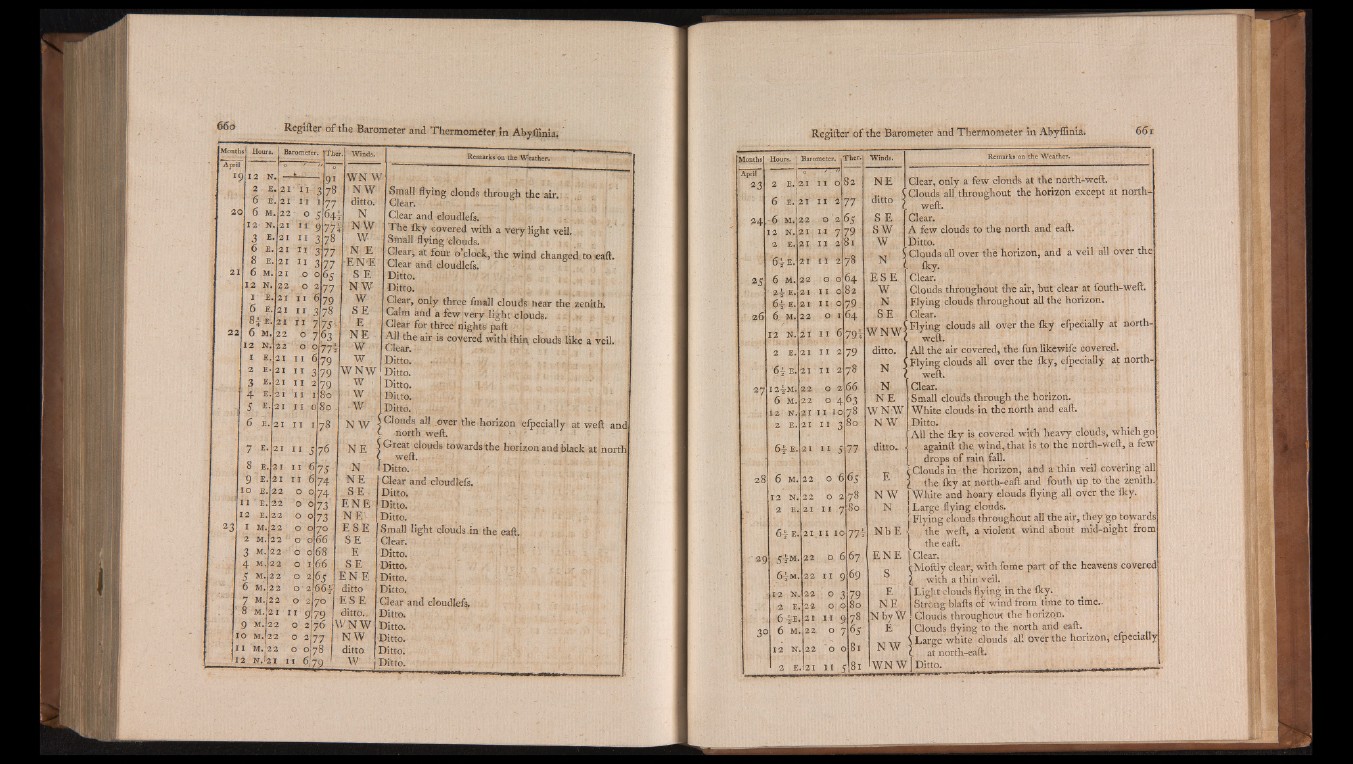 660 Regiſter of the Barometer and Thermometer in Abyſſinia.
Months Hours. Barometer. Ther. Winds. Remarks on the Weather.
April
19 12 N. 91 WNW
2 E. 21 11 3 78 NW Small flying clouds through the air.
6 E. 21 11 1 77 ditto. Clear.
20 6 M. 22 0 5 64½ N Clear and cloudleſs.
12 N. 21 11 9 77½ NW The ſky covered with a very light veil.
3 E. 21 11 3 78 W Small flying clouds.
6 E. 21 11 3 77 NE Clear, at four o'clock, the wind changed to eaſt.
8 E. 21 11 3 77 ENE Clear and cloudleſs.
21 6 M. 21 0 0 65 SE Ditto.
12 N. 22 0 2 77 NW Ditto.
1 E. 21 11 6 79 W Clear, only three ſmall clouds near the zenith.
6 E. 21 11 3 78 SE Calm and a few very light clouds.
E. 21 11 7 75 E Clear for three nights paſt
22 6 M. 22 0 7 63 NE All the air is covered with thin clouds like a veil.
12 N. 22 0 0 77½ W Clear.
1 E. 21 11 6 79 W Ditto.
2 E. 21 11 3 79 WNW Ditto.
3 E. 21 11 2 79 W Ditto.
4 E. 21 11 1 80 W Ditto.
5 E. 21 11 0 80 W Ditto.
6 E. 21 11 1 78 NW Clouds all over the horizon eſpecially at weſt and
north weſt.
7 E. 21 11 5 76 NE Great clouds towards the horizon and black at north
weſt.
8 E. 21 11 6 75 N Ditto.
9 E. 21 11 6 74 NE Clear and cloudleſs.
10 E. 22 0 0 74 SE Ditto.
11 E. 22 0 0 73 ENE Ditto.
12 E. 22 0 0 73 NE Ditto.
23 1 M. 22 0 0 70 ESE Small light clouds in the eaſt.
2 M. 22 0 0 66 SE Clear.
3 M. 22 0 0 68 E Ditto.
4 M. 22 0 1 66 SE Ditto.
5 M. 22 0 2 65 ENE Ditto.
6 M. 22 0 2 66½ ditto Ditto.
7 M. 22 0 2 70 ESE Clear and cloudleſs.
8 M. 21 11 9 79 ditto. Ditto.
9 M. 22 0 2 76 WNW Ditto.
10 M. 22 0 2 77 NW Ditto.
11 M. 22 0 0 78 ditto Ditto.
12 N. 21 11 6 79 W Ditto.
Regiſter of the Barometer and Thermometer in Abyſſinia. 661
Months Hours. Barometer. Ther. Winds. Remarks on the Weather.
April
23 2 E. 21 11 0 82 NE Clear, only a few clouds at the north-weſt.
6 E. 21 11 2 77 ditto Clouds all throughout the horizon except at north-
weſt.
24 6 M. 22 0 2 65 SE Clear.
12 N. 21 11 7 79 SW A few clouds to the north and eaſt.
2 E. 21 11 2 81 W Ditto.
6½ E. 21 11 2 78 N Clouds all over the horizon, and a veil all over the
ſky.
25 6 M. 22 0 0 64 ESE Clear.
2½ E. 21 11 0 82 W Clouds throughout the air, but clear at ſouth-weſt.
6½ E. 21 11 0 79 N Flying clouds throughout all the horizon.
26 6 M. 22 0 1 64 SE Clear.
12 N. 21 11 6 79½ WNW Flying clouds all over the ſky eſpecially at north-
weſt.
2 E. 21 11 2 79 ditto. All the air covered, the ſun likewiſe covered.
6½ E. 21 11 2 78 N Flying clouds all over the ſky, eſpecially at north-
weſt.
27 12½M. 22 0 2 66 N Clear.
6 M. 22 0 4 63 NE Small clouds through the horizon.
12 N. 21 11 10 78 WNW White clouds in the north and eaſt.
2 E. 21 11 3 80 NW Ditto.
6½ E. 21 11 5 77 ditto. All the ſky is covered with heavy clouds, which go
againſt the wind, that is to the north-weſt, a few
drops of rain fall.
28 6 M. 22 0 6 65 E Clouds in the horizon, and a thin veil covering all
the ſky at north-eaſt and ſouth up to the zenith.
12 N. 22 0 2 78 NW White and hoary clouds flying all over the ſky.
2 E. 21 11 7 80 N Large flying clouds.
6½ E. 21 11 10 77½ NbE Flying clouds throughout all the air, they go towards
the weſt, a violent wind about mid-night from
the eaſt.
29 5½M. 22 0 6 67 ENE Clear.
6½M. 22 11 9 69 S Moſtly clear, with ſome part of the heavens covered
with a thin veil.
12 N. 22 0 3 79 E Light clouds flying in the ſky.
2 E. 22 0 0 80 NE Strong blaſts of wind from time to time.
6 ½E. 21 11 9 78 N by W Clouds throughout the horizon.
30 6 M. 22 0 7 65 E Clouds flying to the north and eaſt.
12 N. 22 0 0 81 NW Large white clouds all over the horizon, eſpecially
at north-eaſt.
2 E. 21 11 5 81 WNW Ditto.